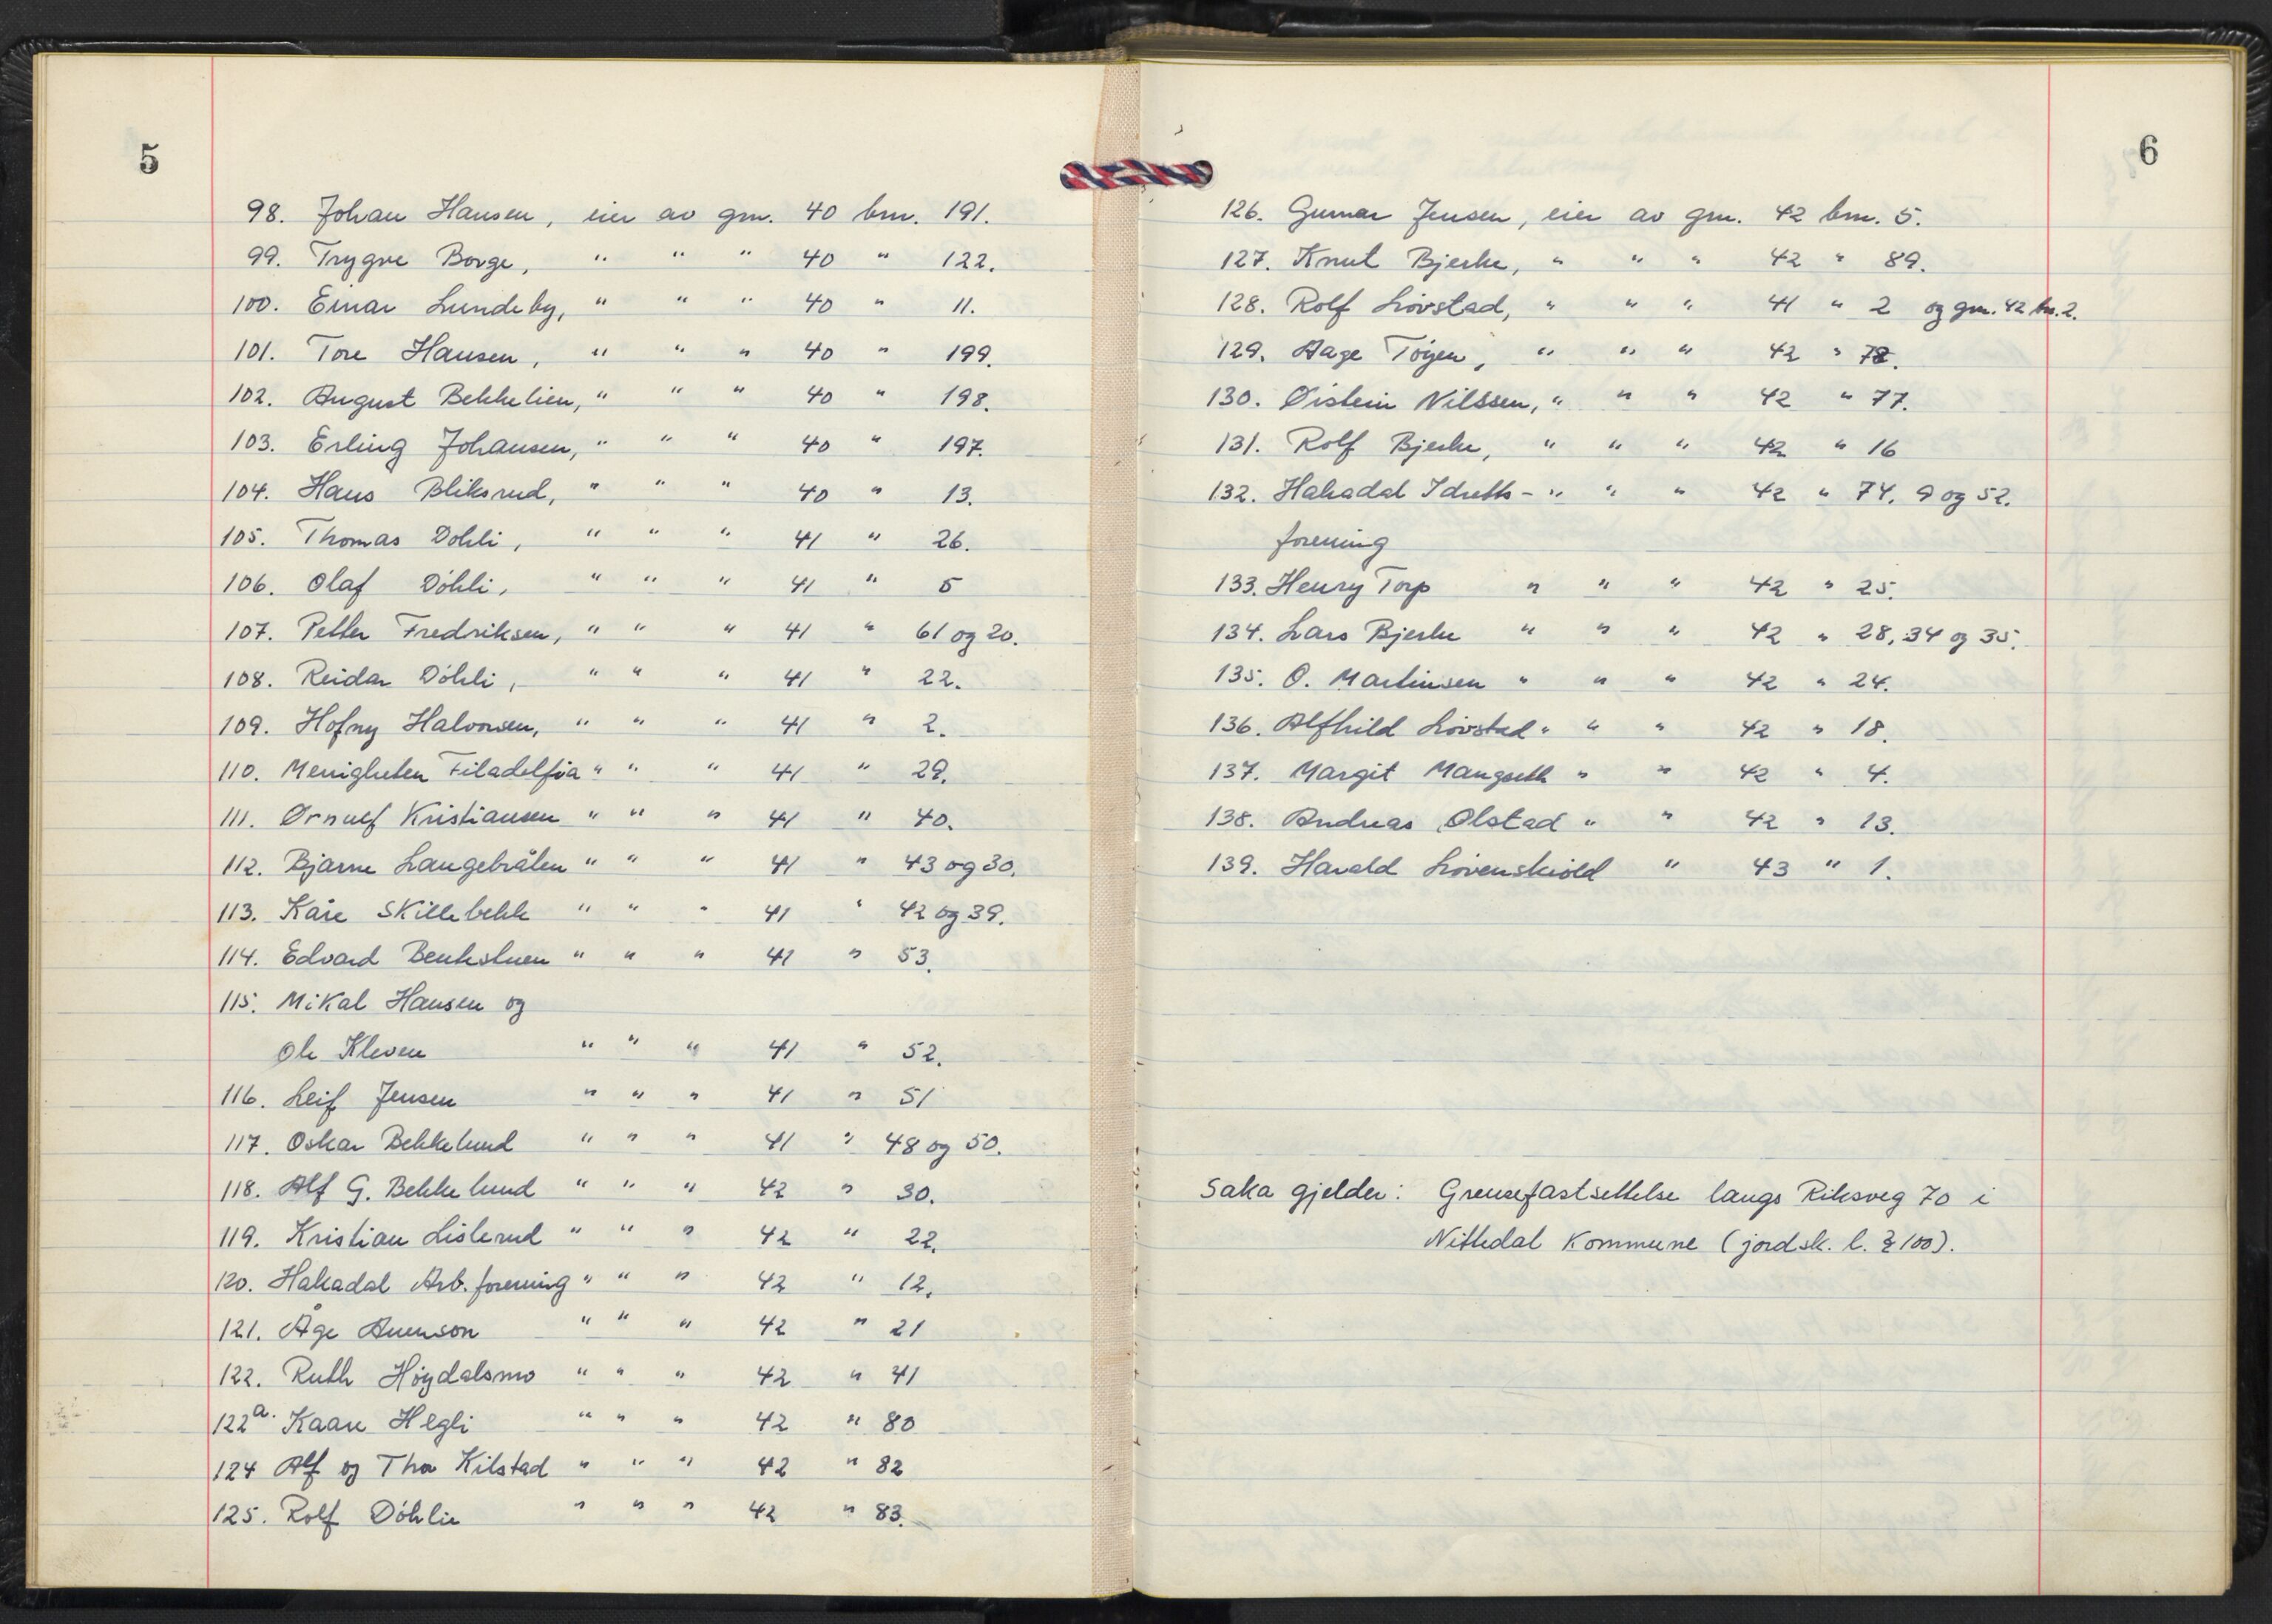 5
98. Johan Hansen, eier av grn. 40 brn. 191.
99. Trygve Borge, " " " 40 " 122.
100. Einar Lundeby, " " " 40 " 11.
101. Tore Hansen, " " " 40 " 199.
102. August Bekkelien, " " " 40 " 198.
103. Erling Johansen, " " " 40 " 197.
104. Hans Bliksrud, " " " 40 " 13.
105. Thomas Dohli, " " " 41 " 26.
106. Olaf Döhli, " " " 41 " 5
107. Petter Fredriksen, " " " 41 " 61 og 20.
108. Reidar Döhli, " " " 41 " 22.
109. Hofny Halvorsen, " " " 41 " 2.
110. Menigheten Filadelfia " " " 41 " 29.
111. Ørnulf Kristiansen " " " 41 " 40.
112. Bjarne Langebråten " " " 41 " 43 og 30.
113. Kåre Skillebekk " " " 41 " 42 og 39.
114. Edvard " " " 41 " 53.
115. Mikal Hansen og
Ole Kleven " " " 41 " 52.
116. Leif Jensen " " " 41 " 51
117. Oskar Bekkelund " " " 41 " 48 og 50.
118. Alf G. Bekkelund " " " 42 " 30.
119. Kristian Lislerud " " " 42 " 22.
120. Hakadal Arb. forening " " " 42 " 12.
121. Åge " " " 42 " 21
122. Ruth Höydalsmo " " " 42 " 41
122a. Kaare Hegli " " " 42 " 80
124 Alf og Thor Kilstad " " " 42 " 82
125. Rolf Döhlie " " " 42 " 83.
6
126. Gunnar Jensen, eier av grn. 42 brn. 5.
127. Knut Bjerke, " " " 42 " 89.
128. Rolf Lövstad, " " " 41 " 2 og grn. 42 bn. 2.
129. Aage Töyen, " " " 42 " 78.
130. Øistein Nilssen, " " " 42 " 77.
131. Rolf Bjerke, " " " 42 " 16
132. Hakadal Idretts- " " " 42 " 74, 9 og 52.
forening
133. Henry Torp " " " 42 " 25.
134. Lars Bjerke " " " 42 " 28, 34 og 35.
135. O. Martinsen " " " 42 " 24.
136. Alfhild Lövstad " " " 42 " 18.
137. Margit Mangseth " " 42 " 4.
138. Andreas Olstad " " 42 " 13.
139. Harald Lövenskiold " 43 " 1.
Saka gjelder: Grensefastsettelse langs Riksveg 70 i
Nittedal Kommune (jordsk. l. § 100).